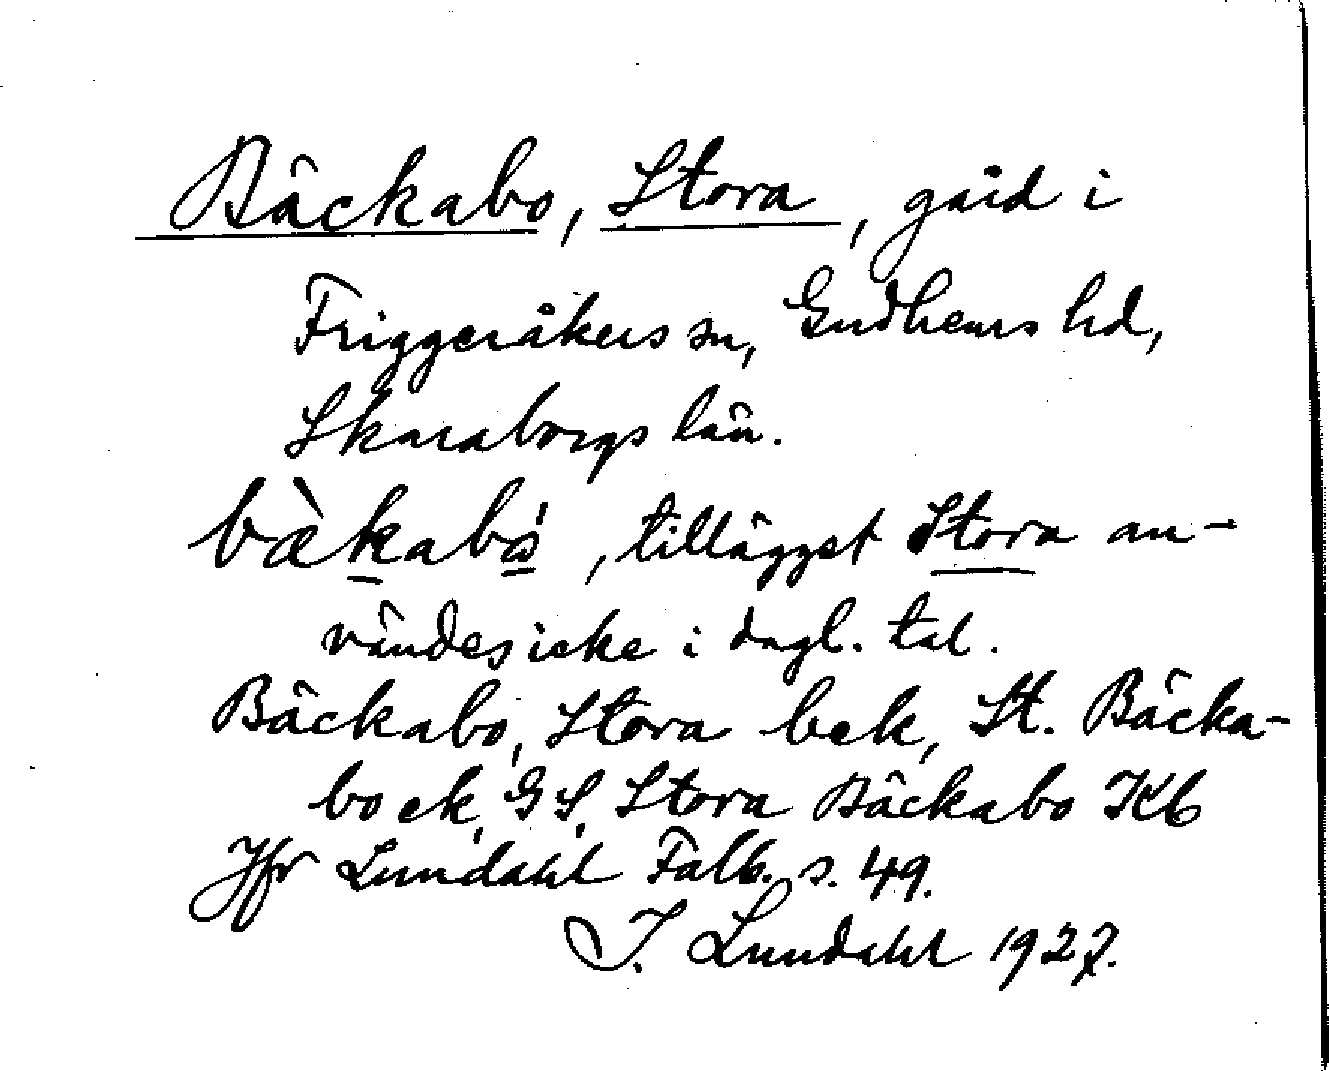 Bäckabo, Stora, gård i
Friggeråkers sn, Gudhems hd,
Skaraborgs län.
bæ̀kabó, tillägget Stora an-
vändes icke i dagl. tal.
Bäckabo, Stora bek, St. Bäcka-
bo ek, GS, Stora Bäckabo Kb
Jfr Lundahl Falb. s. 49.
I. Lundahl 1927.